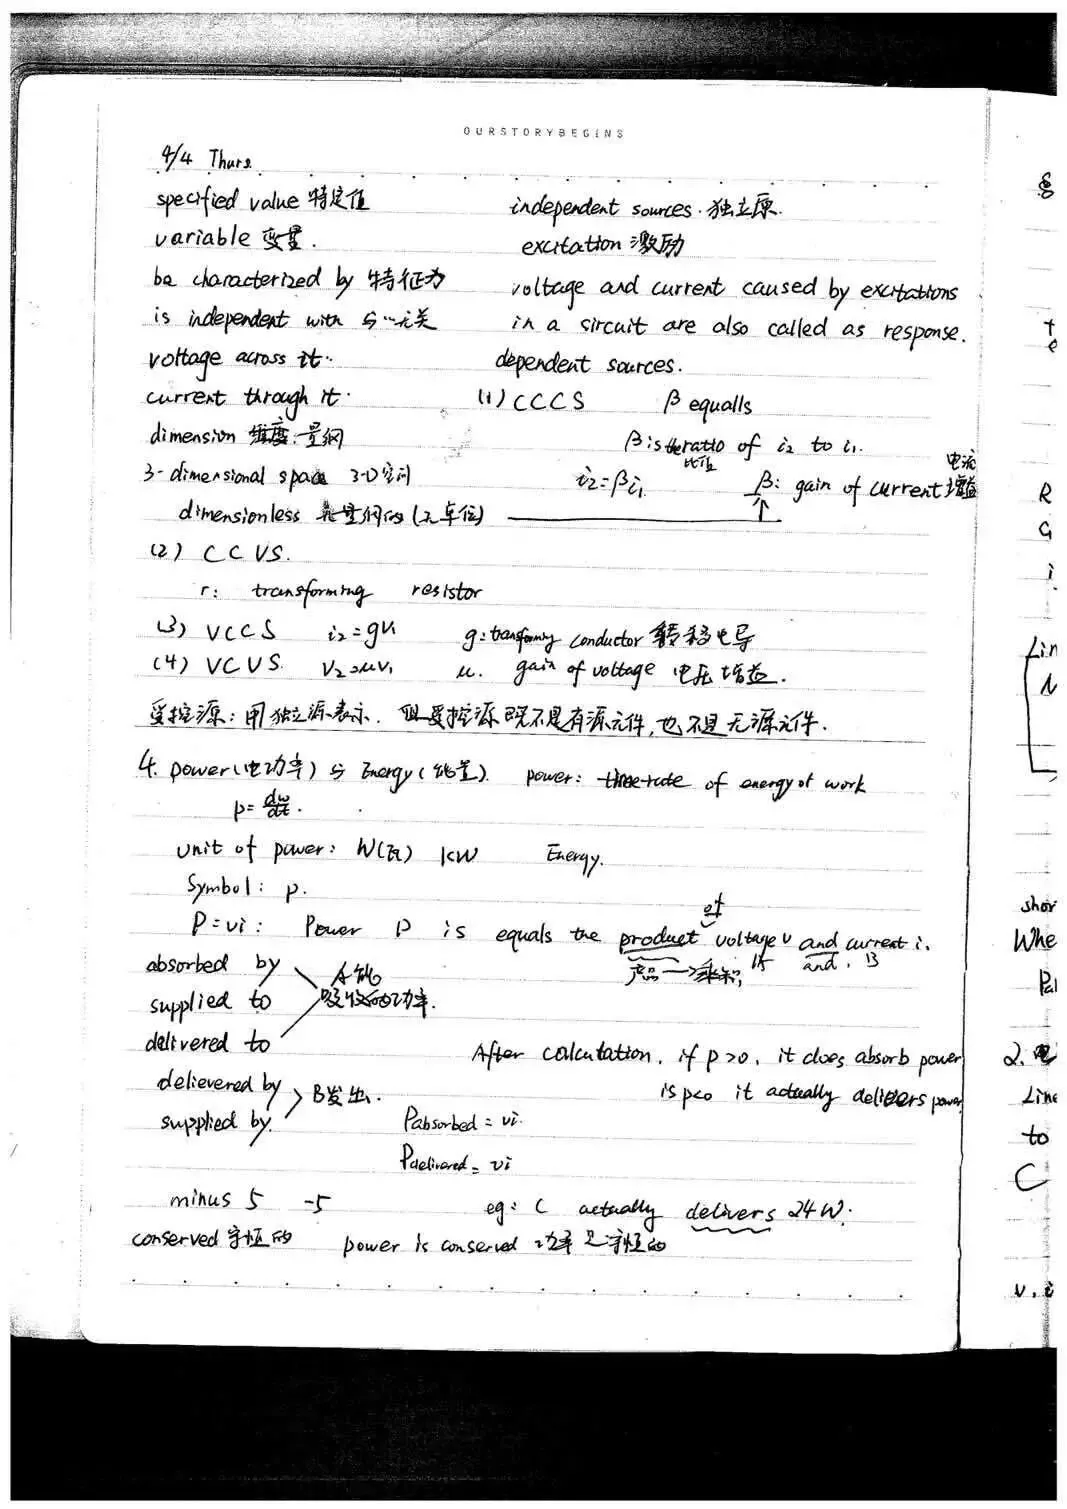 OURSTORYBEGINS
4/4 Thurs.
specified value 特定值
independent sources. 独立原.
variable 变量.
excitation 激励
be characterized by 特征为
voltage and current caused by excitations
is independent with 与…无关
in a sircuit are also called as response.
voltage across it..
dependent sources.
current through it.
(1) CCCS β equalls
dimension 维度: 量纲
β is the ratio of i2 to i1.
比值
3-dimensional space 3-D空间
i2=βi1 β: gain of current 电流增益
dimensionless 量纲的 (无单位)
(2) CCVS.
r: transforming resistor
(3) VCCS i2=gv1 g: transforming conductor 转移电导
(4) VCVS. V2=μV1 μ. gain of voltage 电压增益.
受控源: 用独立源表示. 但受控源既不是有源元件, 也不是无源元件.
4. power(电功率) 与 Energy(能量). power: the rate of energy of work
p=dw/dt.
unit of power: W(瓦) kW Energy.
Symbol: p.
of
P=vi: Power P is equals the product voltage v and current i.
产品→乘积, 15 and, 13
absorbed by
supplied to
A
吸收的功率.
delivered to
After calculation, if p>0, it does absorb power
delievered by
B发出.
is p<0 it actually delivers power
supplied by
Pabsorbed = vi.
Pdelivered = vi
minus 5 -5
eg: C actually delivers 24W.
conserved 守恒的 power is conserved 功率是守恒的
g
t
e
R
G
i
Lin
N
shor
Whe
Pa
2.
Line
to
C
v. i